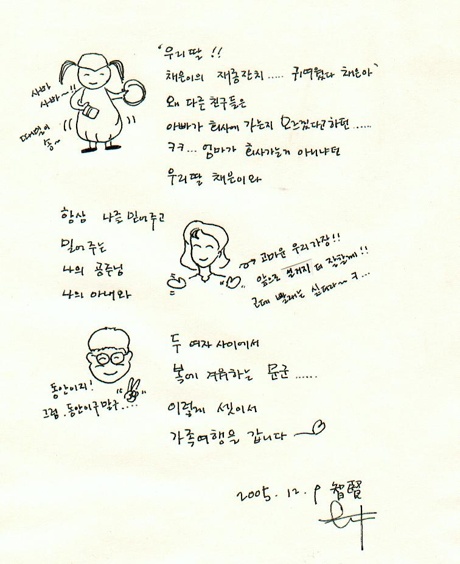 '우리딸 !!
채운이의 재롱잔치 ..... 귀여웠다 채운아'
왜 다른 친구들은
아빠가 회사에 가는지 모르겠다고하던 ......
ㅋㅋ... 엄마가 회사가는게 아니냐던
우리딸 채운이와
사바
사바~!!
동~
항상 나를 믿어주고
밀어주는
나의 공주님
나의 아내와
고마운 우리가장!!
앞으로 설거지 더 잘할게!!
근데 빨래는 싫다아~ ㅋ...
두 여자 사이에서
복에 겨워하는 문군 ......
동안이지!
그럼, 동안이구말구....
이렇게 셋이서
가족여행을 갑니다
2005. 12. 9 智賢